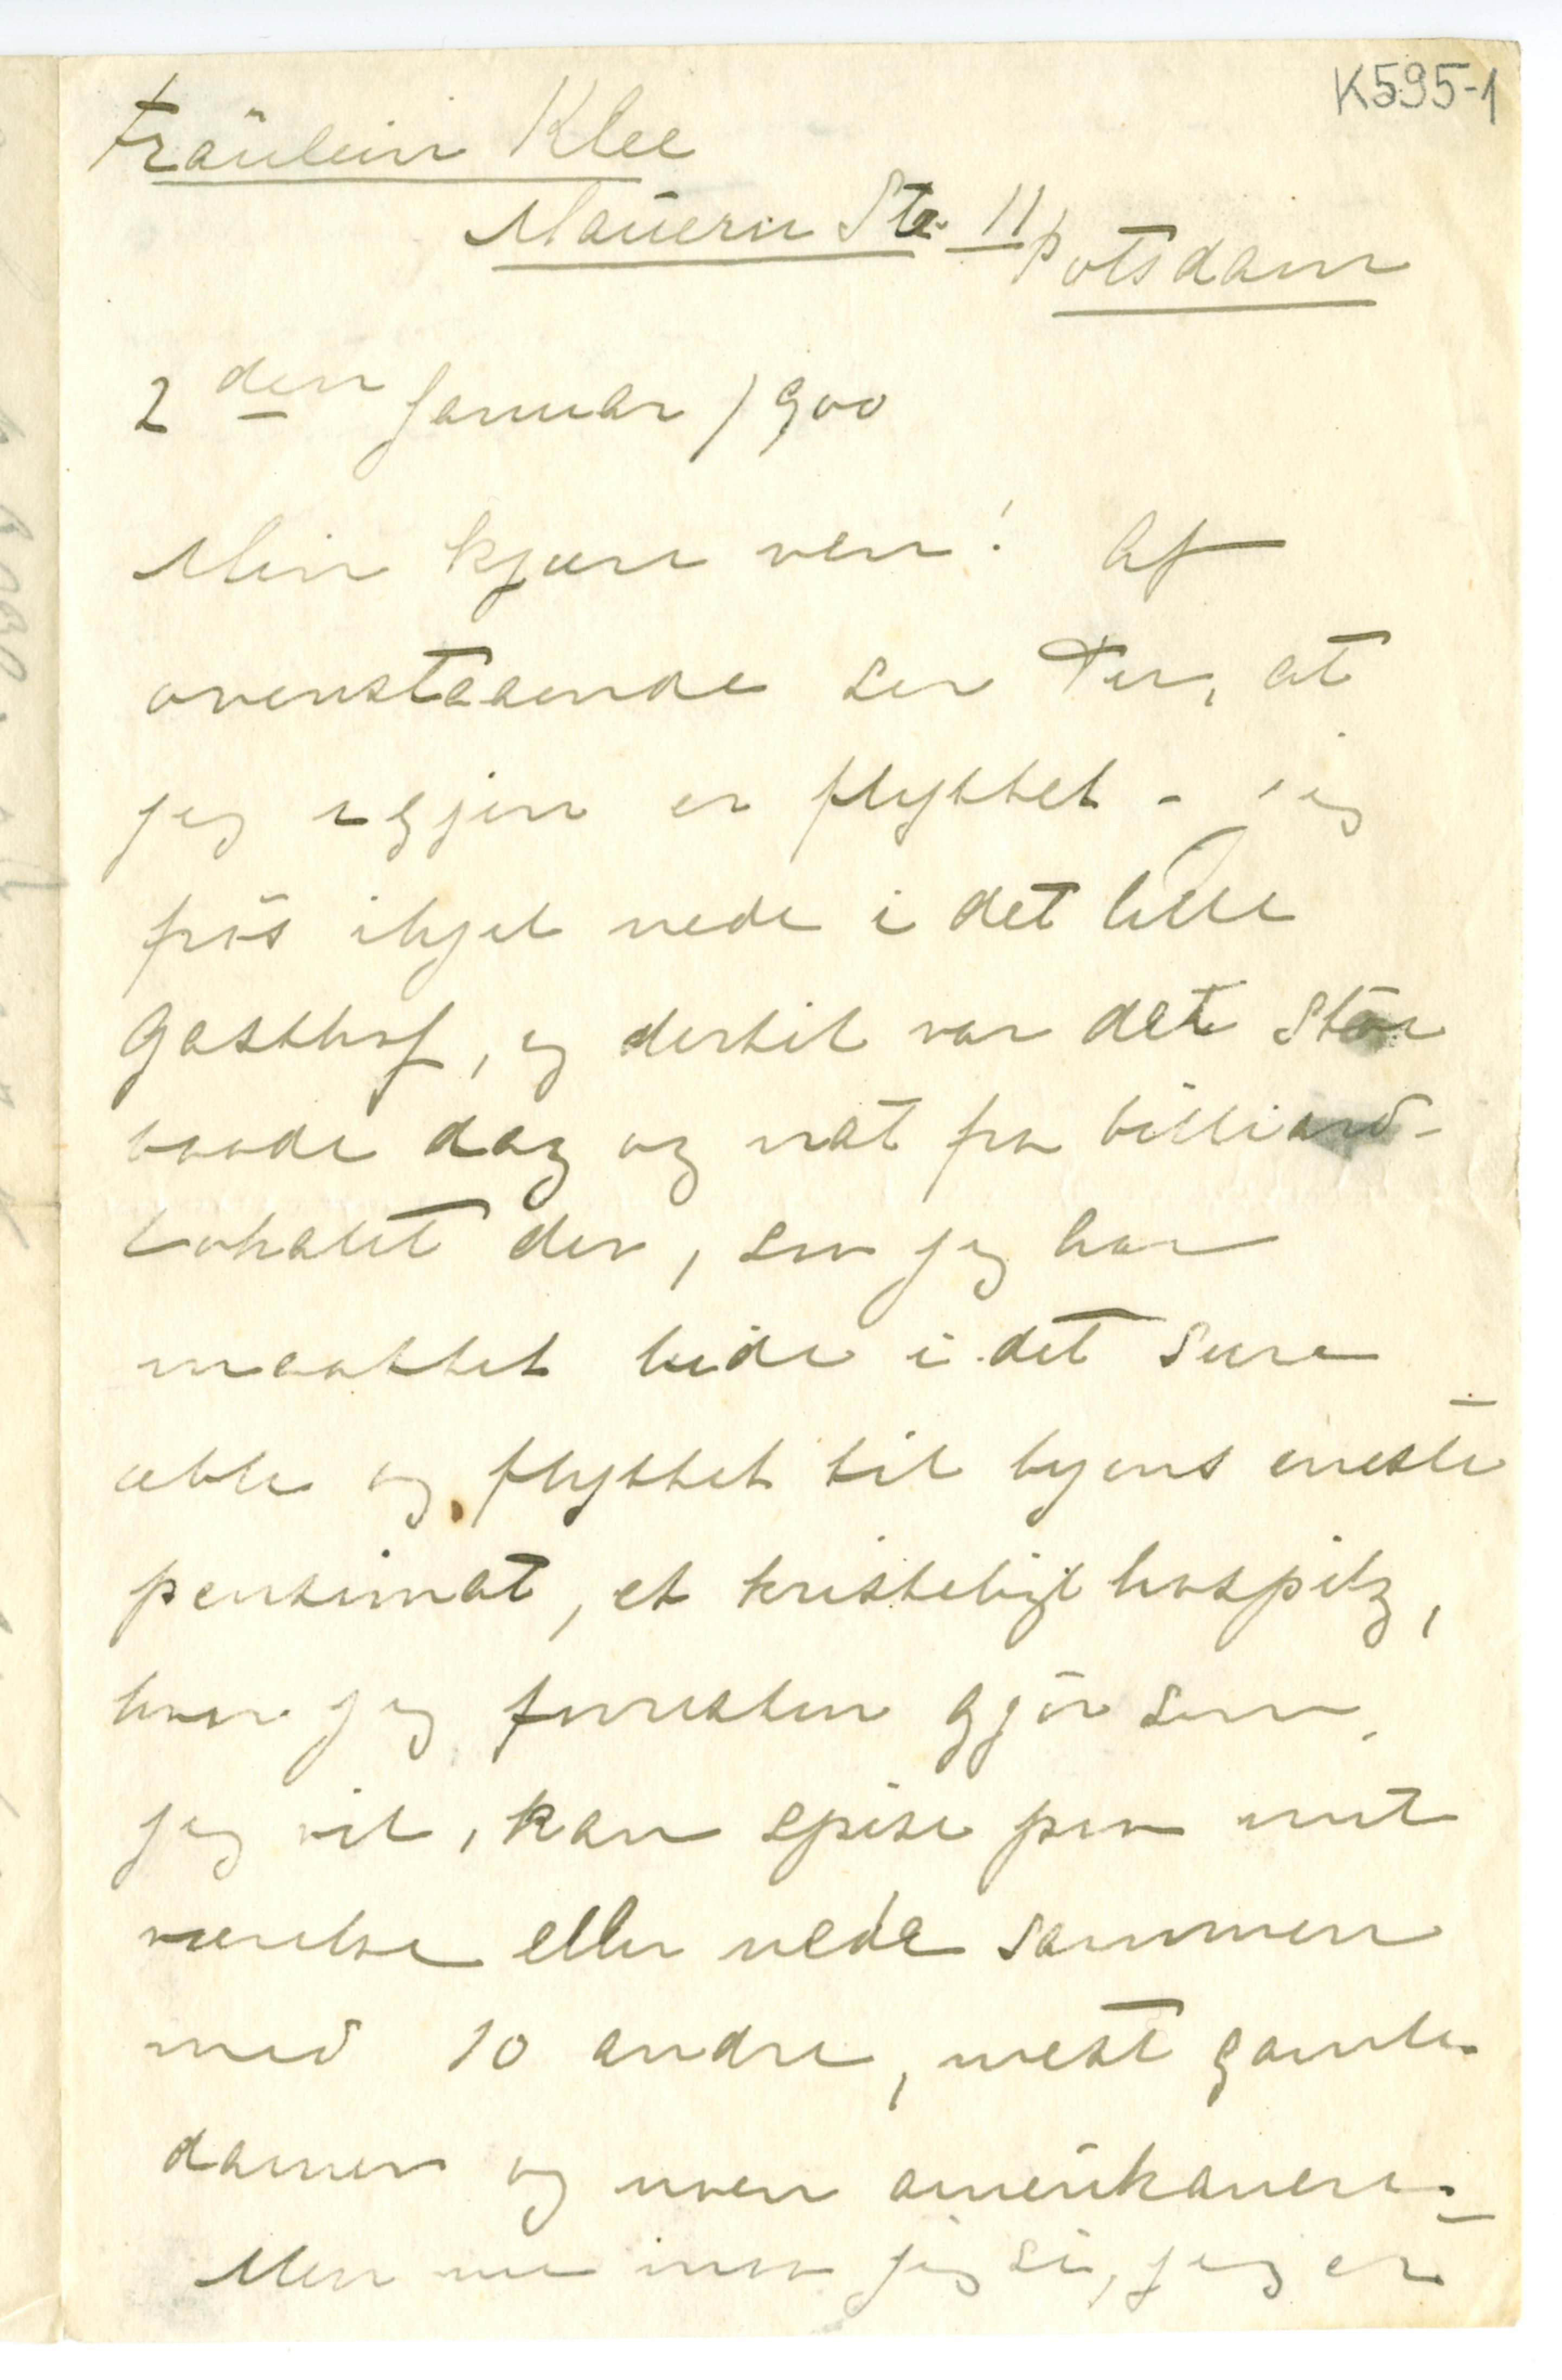 K595-1
Fräulein Klee
Mauern Str. 11 Potsdam
2 den Januar 1900
Min kjære ven! Af
ovenstaaende ser Der, at
jeg igjen er flyttet - jeg
frøs ihjel nede i det lille
Gasthof, og dertil var det støi
baade dag og nat fra billiard-
lokalet der, saa jeg har
maattet bide i det sure
æble og flyttet til byens eneste
pensionat, et kristeligt hospitz,
hvor jeg forresten gjør som
jeg vil, kan spise paa mit
værelse eller nede sammen
med 10 andre, mest gamle
damer og noen amerikanere.
Men nu maa jeg si, jeg er